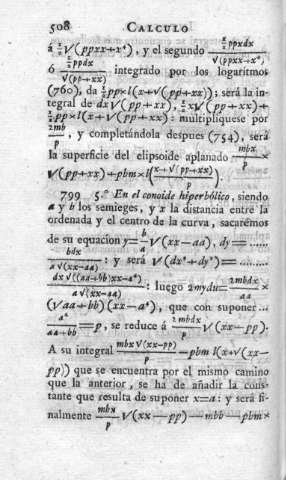 508 CALCULO
á ½√(ppxx+x⁴), y el segundo ½ppxdx/√(ppxx+x⁴)
ó ½ppdx/√(pp+xx) integrado por los logaritmos
(760), da ½pp×l(x+√(pp+xx)); será la in-
tegral de dx√(pp+xx), ½x√(pp+xx)+
½pp×l(x+√(pp+xx)): multiplíquese por
2mb/p, y completándola despues (754), será
la superficie del elipsoide aplanado mbx/p ×
√(pp+xx)+pbm×l(x+√(pp+xx)/p).
799 5.° En el conoide hiperbólico, siendo
a y b los semieges, y x la distancia entre la
ordenada y el centro de la curva, sacarémos
de su equacion y=b/a √(xx—aa), dy=.......
bdx/a√(xx—aa): y será √(dx²+dy²)=.......
dx√((aa+bb)xx—a⁴)/a√(xx—aa): luego 2mydu=2mbdx/aa ×
(√aa+bb)(xx—a⁴), que con suponer...
a⁴/aa+bb=p, se reduce á 2mbdx/p √(xx—pp).
A su integral mbx√(xx—pp)/p —pbm l(x+√(xx—
pp)) que se encuentra por el mismo camino
que la anterior, se ha de añadir la cons-
tante que resulta de suponer x=a: y será fi-
nalmente mbx/p √(xx—pp)—mbb—pbm×